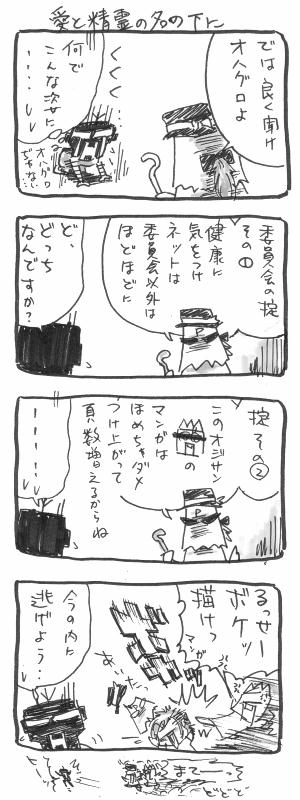 愛と精霊の名の下に
では良く聞け
オハグロよ
何で
こんな次女に
・・・・・
くくく
オハグロ
じゃない
委員会の掟
その①
健康に
気をつけ
ネットは
委員会以外は
ほどほどに
ど、
どっち
なんですか?
掟その②
このオジサン
の
マンガは
ほめちゃダメ
つけ上がって
頁数増えるからね
るっせー
ボケッ
マンガ
描けっ
あいたっ
今の内に
逃げよう・・
まてーっ
どどど